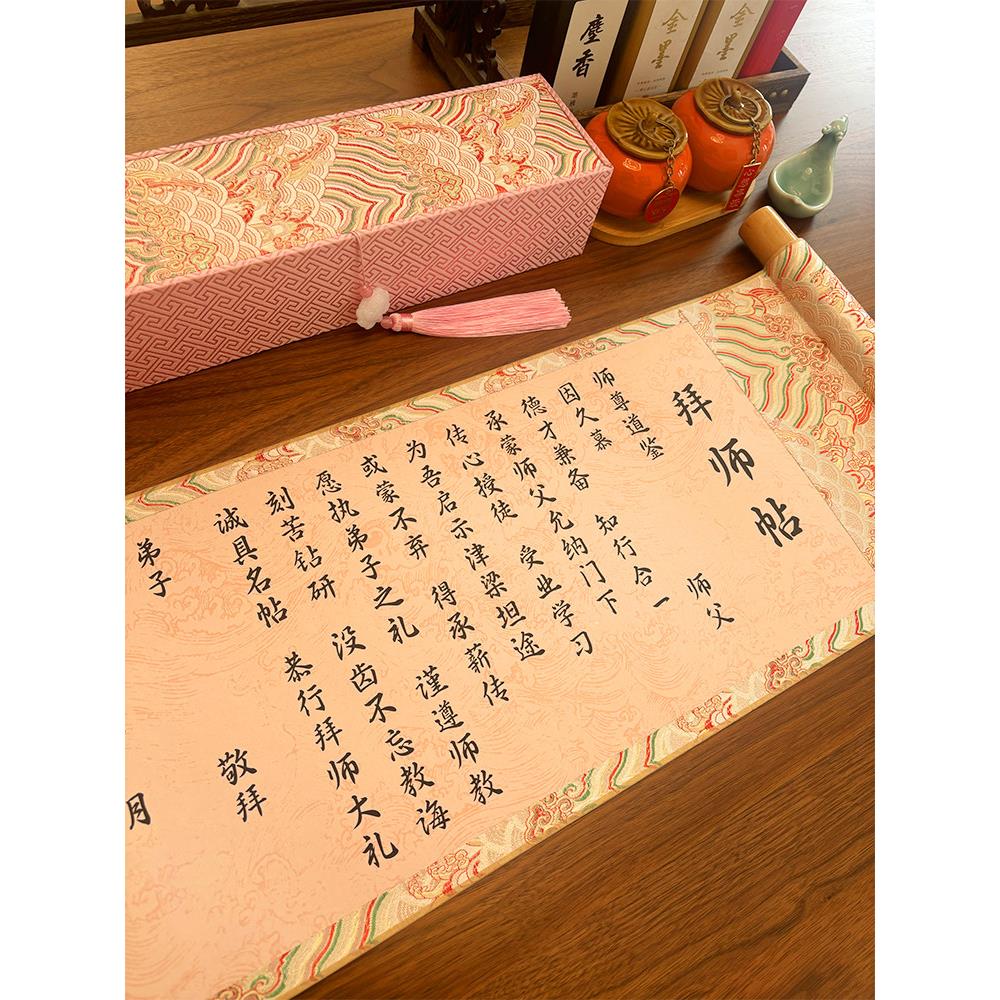 塵香
金墨
金墨
拜师帖
师尊道鉴
因久慕 师父
德才兼备 知行合一
承蒙师父允纳门下
传心授徒 受业学习
为吾启示津梁坦途
或蒙不弃 得承薪传
愿执弟子之礼 谨遵师教
刻苦钻研 没齿不忘教诲
诚具名帖 恭行拜师大礼
弟子 敬拜
月